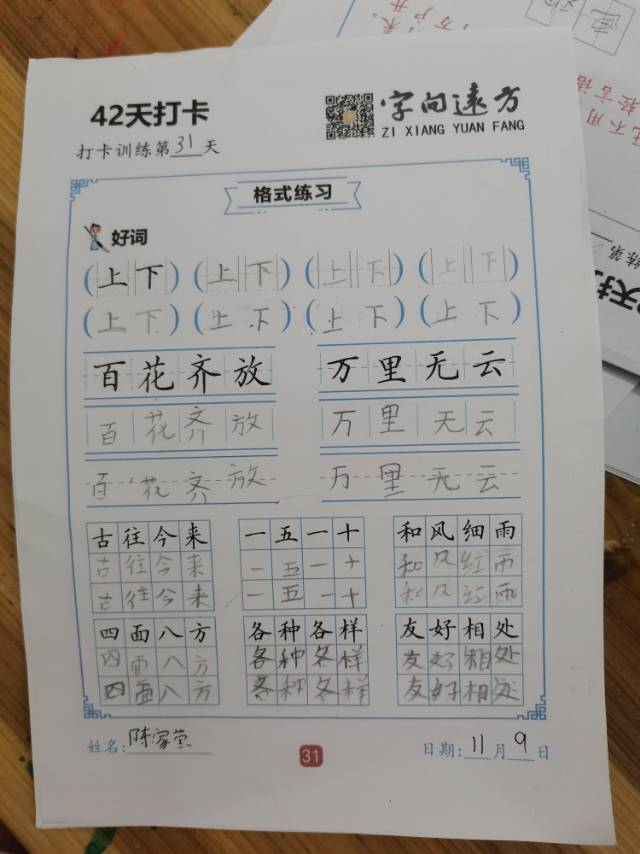 42天打卡
打卡训练第31天
字向远方
ZI XIANG YUAN FANG
格式练习
好词
(上下) (上下) (上下) (上下)
(上下) (上下) (上下) (上下)
百花齐放 万里无云
百花齐放 万里无云
百花齐放 万里无云
古往今来 一五一十 和风细雨
古往今来 一五一十 和风红雨
古往今来 一五一十 和风红雨
四面八方 各种各样 友好相处
四面八方 各种各样 友好相处
四面八方 各种各样 友好相处
姓名:陈家萱 31 日期:11月9日